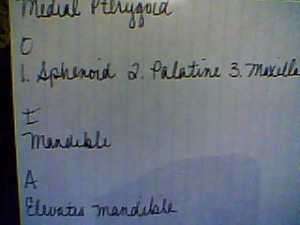 Medial Pterygoid
O
1. Sphenoid 2. Palatine 3. Maxilla
I
Mandible
A
Elevates mandible